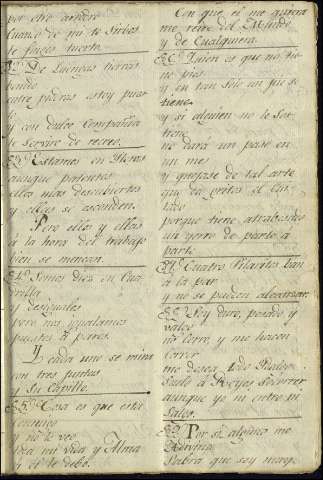 por otro nombre
Cuando de mi te sirbes
te finges tuerto.
De Lucengas tierras
bando
entre piedras estoy pues
to
y con dulce Compañia
te servire de recreo.
Estamos en
aunque patentes
ellas mas descubiertas
y ellas se esconden.
Pero ellos y ellas
á la hora del trabajo
bien se menean.
Somos diez en Cua
drilla
y desiguales
pero nos igualamos
puestos á pares.
Y cada uno se mira
con tres juntas
y Su Capillo.
Cosa es que esta
conmigo
y no le veo
Dela mi vida y Alma
y el te debo.
Con que, el me quiera
me retire del Mundo
y de Cualquiera.
Quien es que no tie
ne pies
y en tan solo un pie se
tiene,
y si alguien no le sos
tiene
no dará un paso en
un mes
y quejase de tal arte
que da gritos el Cui
tado
porque tiene atrabesado
un yerro de parte á
parte
Cuatro Pilaritos ban
á la par
y no se pueden alcanzar.
Soy duro, pesado y
valgo
no Corro, y me hacen
Correr
me desea todo
Suelo á Reyes Socorrer
aunque yo ni entro ni
Salgo.
Por si alguno me
Adivina
Sabra que soy